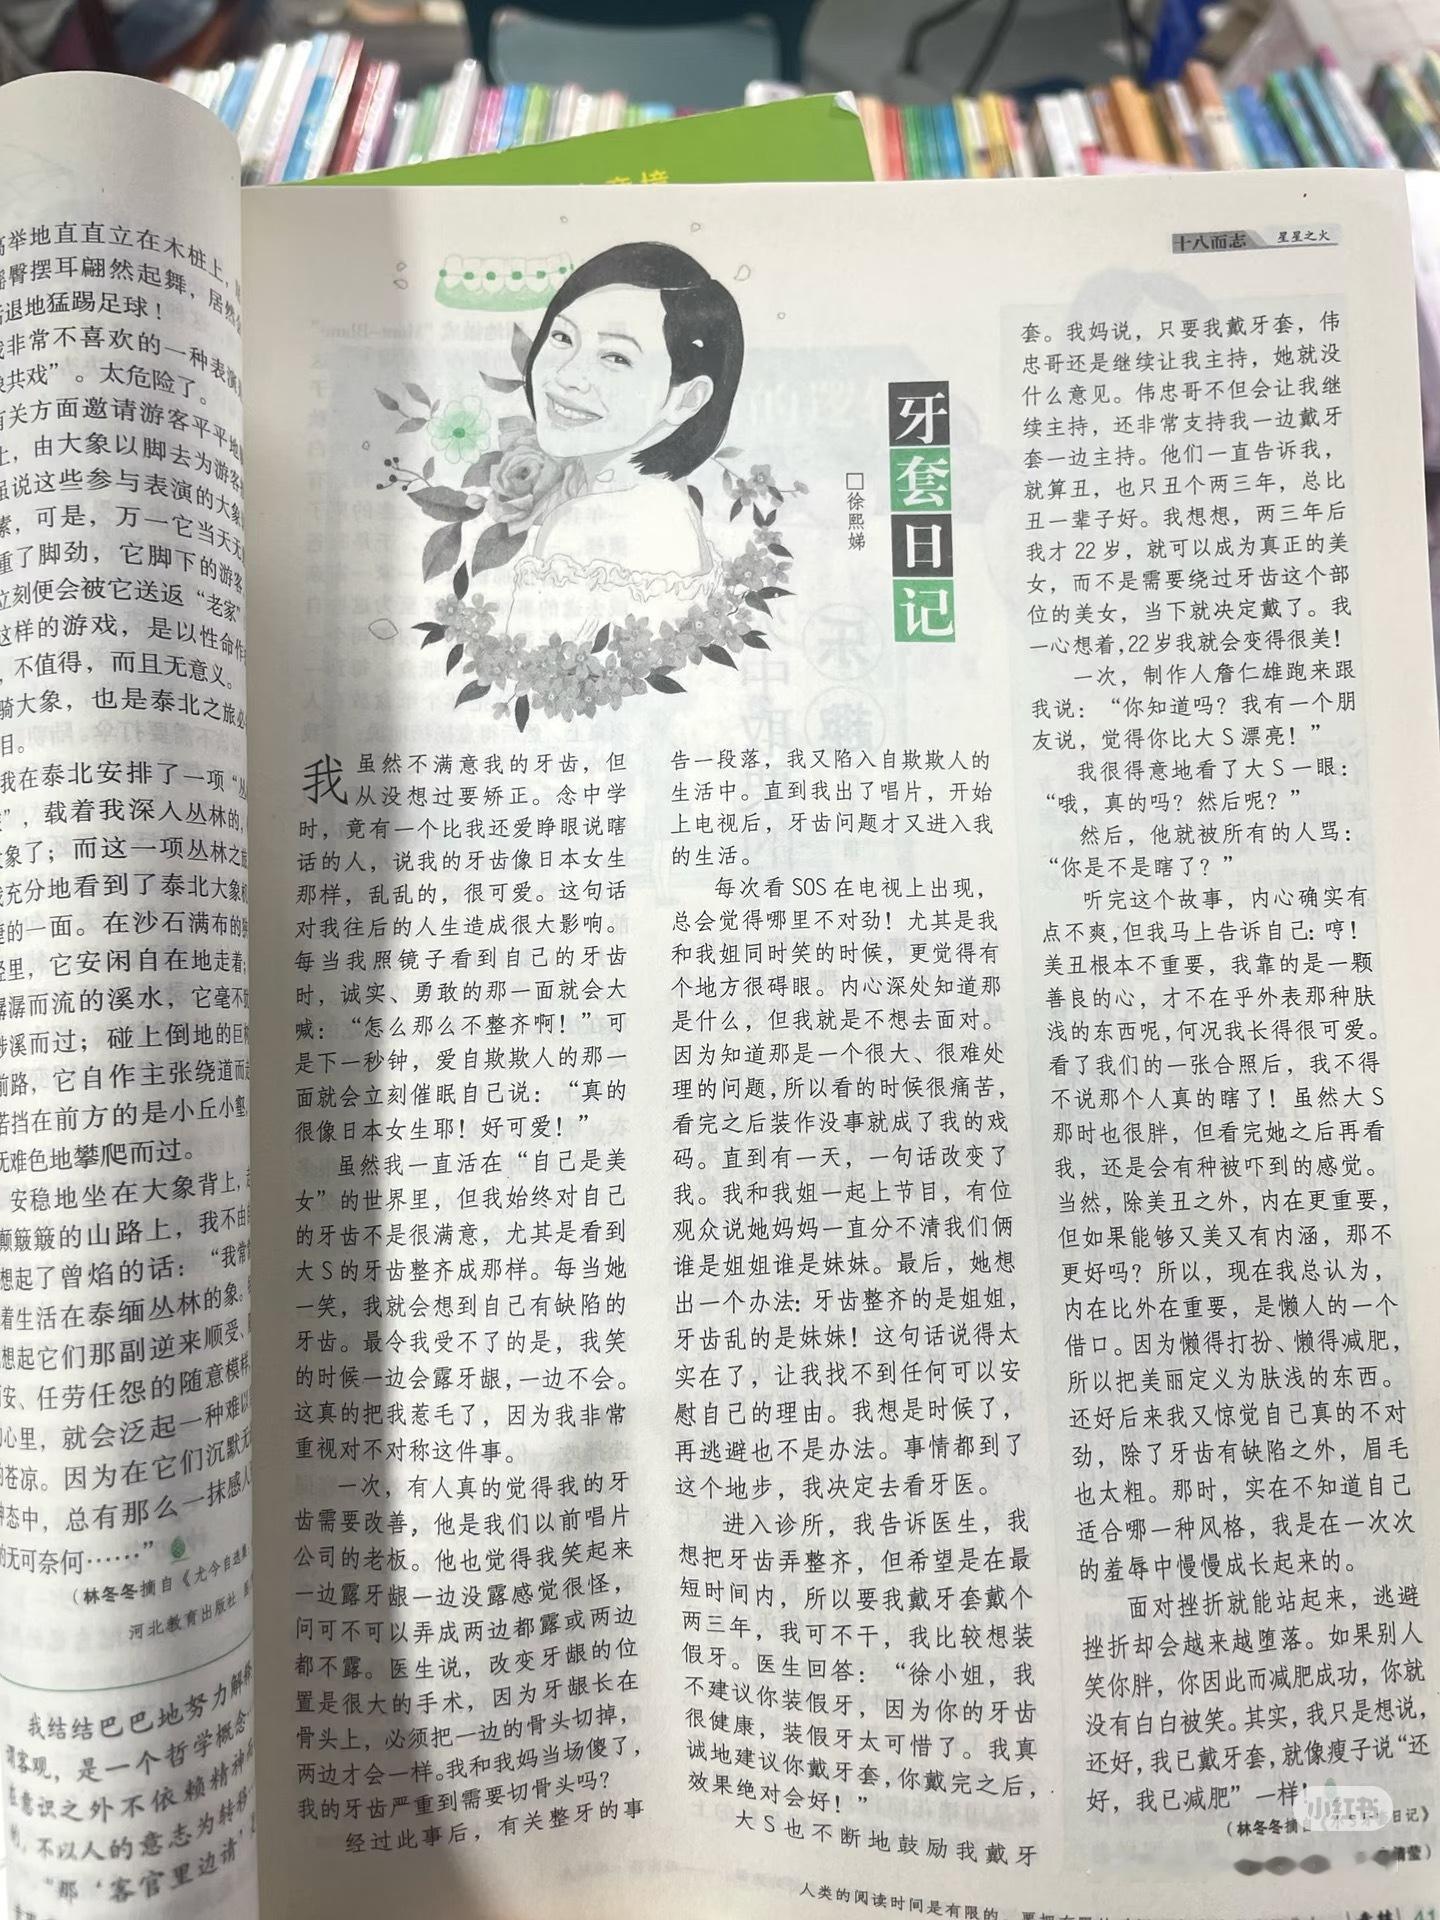 意境
高举地直直立在木桩上，
摇臀摆耳翩然起舞，居然
后退地猛踢足球！
我非常不喜欢的一种表演
象共戏”。太危险了。
有关方面邀请游客平平地
上，由大象以脚去为游客
虽说这些参与表演的大象
素，可是，万一它当天无
重了脚劲，它脚下的游客
立刻便会被它送返“老家”
这样的游戏，是以性命作
，不值得，而且无意义。
骑大象，也是泰北之旅必
目。
我在泰北安排了一项“丛
”，载着我深入丛林的，
大象了；而这一项丛林之旅
我充分地看到了泰北大象
的一面。在沙石满布的
径里，它安闲自在地走着；
潺潺而流的溪水，它毫不
涉溪而过；碰上倒地的巨
前路，它自作主张绕道而
若挡在前方的是小丘小壑，
无难色地攀爬而过。
安稳地坐在大象背上，
颠簸簸的山路上，我不由
想起了曾焰的话：“我常
着生活在泰缅丛林的象。
想起它们那副逆来顺受、
安、任劳任怨的随意模样，
心里，就会泛起一种难以
的苍凉。因为在它们沉默无
神态中，总有那么一抹感人
的无可奈何……”
（林冬冬摘自《尤今自选集
河北教育出版社
我结结巴巴地努力解释
谓客观，是一个哲学概念
在意识之外不依赖精神而
的，不以人的意志为转移
“那‘客官里边请’
十八而志 星星之火
牙套日记
□徐熙娣
我虽然不满意我的牙齿，但
从没想过要矫正。念中学
时，竟有一个比我还爱睁眼说瞎
话的人，说我的牙齿像日本女生
那样，乱乱的，很可爱。这句话
对我往后的人生造成很大影响。
每当我照镜子看到自己的牙齿
时，诚实、勇敢的那一面就会大
喊：“怎么那么不整齐啊！”可
是下一秒钟，爱自欺欺人的那一
面就会立刻催眠自己说：“真的
很像日本女生耶！好可爱！”
虽然我一直活在“自己是美
女”的世界里，但我始终对自己
的牙齿不是很满意，尤其是看到
大S的牙齿整齐成那样。每当她
一笑，我就会想到自己有缺陷的
牙齿。最令我受不了的是，我笑
的时候一边会露牙龈，一边不会。
这真的把我惹毛了，因为我非常
重视对不对称这件事。
一次，有人真的觉得我的牙
齿需要改善，他是我们以前唱片
公司的老板。他也觉得我笑起来
一边露牙龈一边没露感觉很怪，
问可不可以弄成两边都露或两边
都不露。医生说，改变牙龈的位
置是很大的手术，因为牙龈长在
骨头上，必须把一边的骨头切掉，
两边才会一样。我和我妈当场傻了，
我的牙齿严重到需要切骨头吗？
经过此事后，有关整牙的事
告一段落，我又陷入自欺欺人的
生活中。直到我出了唱片，开始
上电视后，牙齿问题才又进入我
的生活。
每次看SOS在电视上出现，
总会觉得哪里不对劲！尤其是我
和我姐同时笑的时候，更觉得有
个地方很碍眼。内心深处知道那
是什么，但我就是不想去面对。
因为知道那是一个很大、很难处
理的问题，所以看的时候很痛苦，
看完之后装作没事就成了我的戏
码。直到有一天，一句话改变了
我。我和我姐一起上节目，有位
观众说她妈妈一直分不清我们俩
谁是姐姐谁是妹妹。最后，她想
出一个办法：牙齿整齐的是姐姐，
牙齿乱的是妹妹！这句话说得太
实在了，让我找不到任何可以安
慰自己的理由。我想是时候了，
再逃避也不是办法。事情都到了
这个地步，我决定去看牙医。
进入诊所，我告诉医生，我
想把牙齿弄整齐，但希望是在最
短时间内，所以要我戴牙套戴个
两三年，我可不干，我比较想装
假牙。医生回答：“徐小姐，我
不建议你装假牙，因为你的牙齿
很健康，装假牙太可惜了。我真
诚地建议你戴牙套，你戴完之后，
效果绝对会好！”
大S也不断地鼓励我戴牙
套。我妈说，只要我戴牙套，伟
忠哥还是继续让我主持，她就没
什么意见。伟忠哥不但会让我继
续主持，还非常支持我一边戴牙
套一边主持。他们一直告诉我，
就算丑，也只丑个两三年，总比
丑一辈子好。我想想，两三年后
我才22岁，就可以成为真正的美
女，而不是需要绕过牙齿这个部
位的美女，当下就决定戴了。我
一心想着，22岁我就会变得很美！
一次，制作人詹仁雄跑来跟
我说：“你知道吗？我有一个朋
友说，觉得你比大S漂亮！”
我很得意地看了大S一眼：
“哦，真的吗？然后呢？”
然后，他就被所有的人骂：
“你是不是瞎了？”
听完这个故事，内心确实有
点不爽，但我马上告诉自己：哼！
美丑根本不重要，我靠的是一颗
善良的心，才不在乎外表那种肤
浅的东西呢，何况我长得很可爱。
看了我们的一张合照后，我不得
不说那个人真的瞎了！虽然大S
那时也很胖，但看完她之后再看
我，还是会有种被吓到的感觉。
当然，除美丑之外，内在更重要，
但如果能够又美又有内涵，那不
更好吗？所以，现在我总认为，
内在比外在重要，是懒人的一个
借口。因为懒得打扮、懒得减肥，
所以把美丽定义为肤浅的东西。
还好后来我又惊觉自己真的不对
劲，除了牙齿有缺陷之外，眉毛
也太粗。那时，实在不知道自己
适合哪一种风格，我是在一次次
的羞辱中慢慢成长起来的。
面对挫折就能站起来，逃避
挫折却会越来越堕落。如果别人
笑你胖，你因此而减肥成功，你就
没有白白被笑。其实，我只是想说，
还好，我已戴牙套，就像瘦子说“还
好，我已减肥”一样！
（林冬冬摘 日记》
人类的阅读时间是有限的，
41
小红书